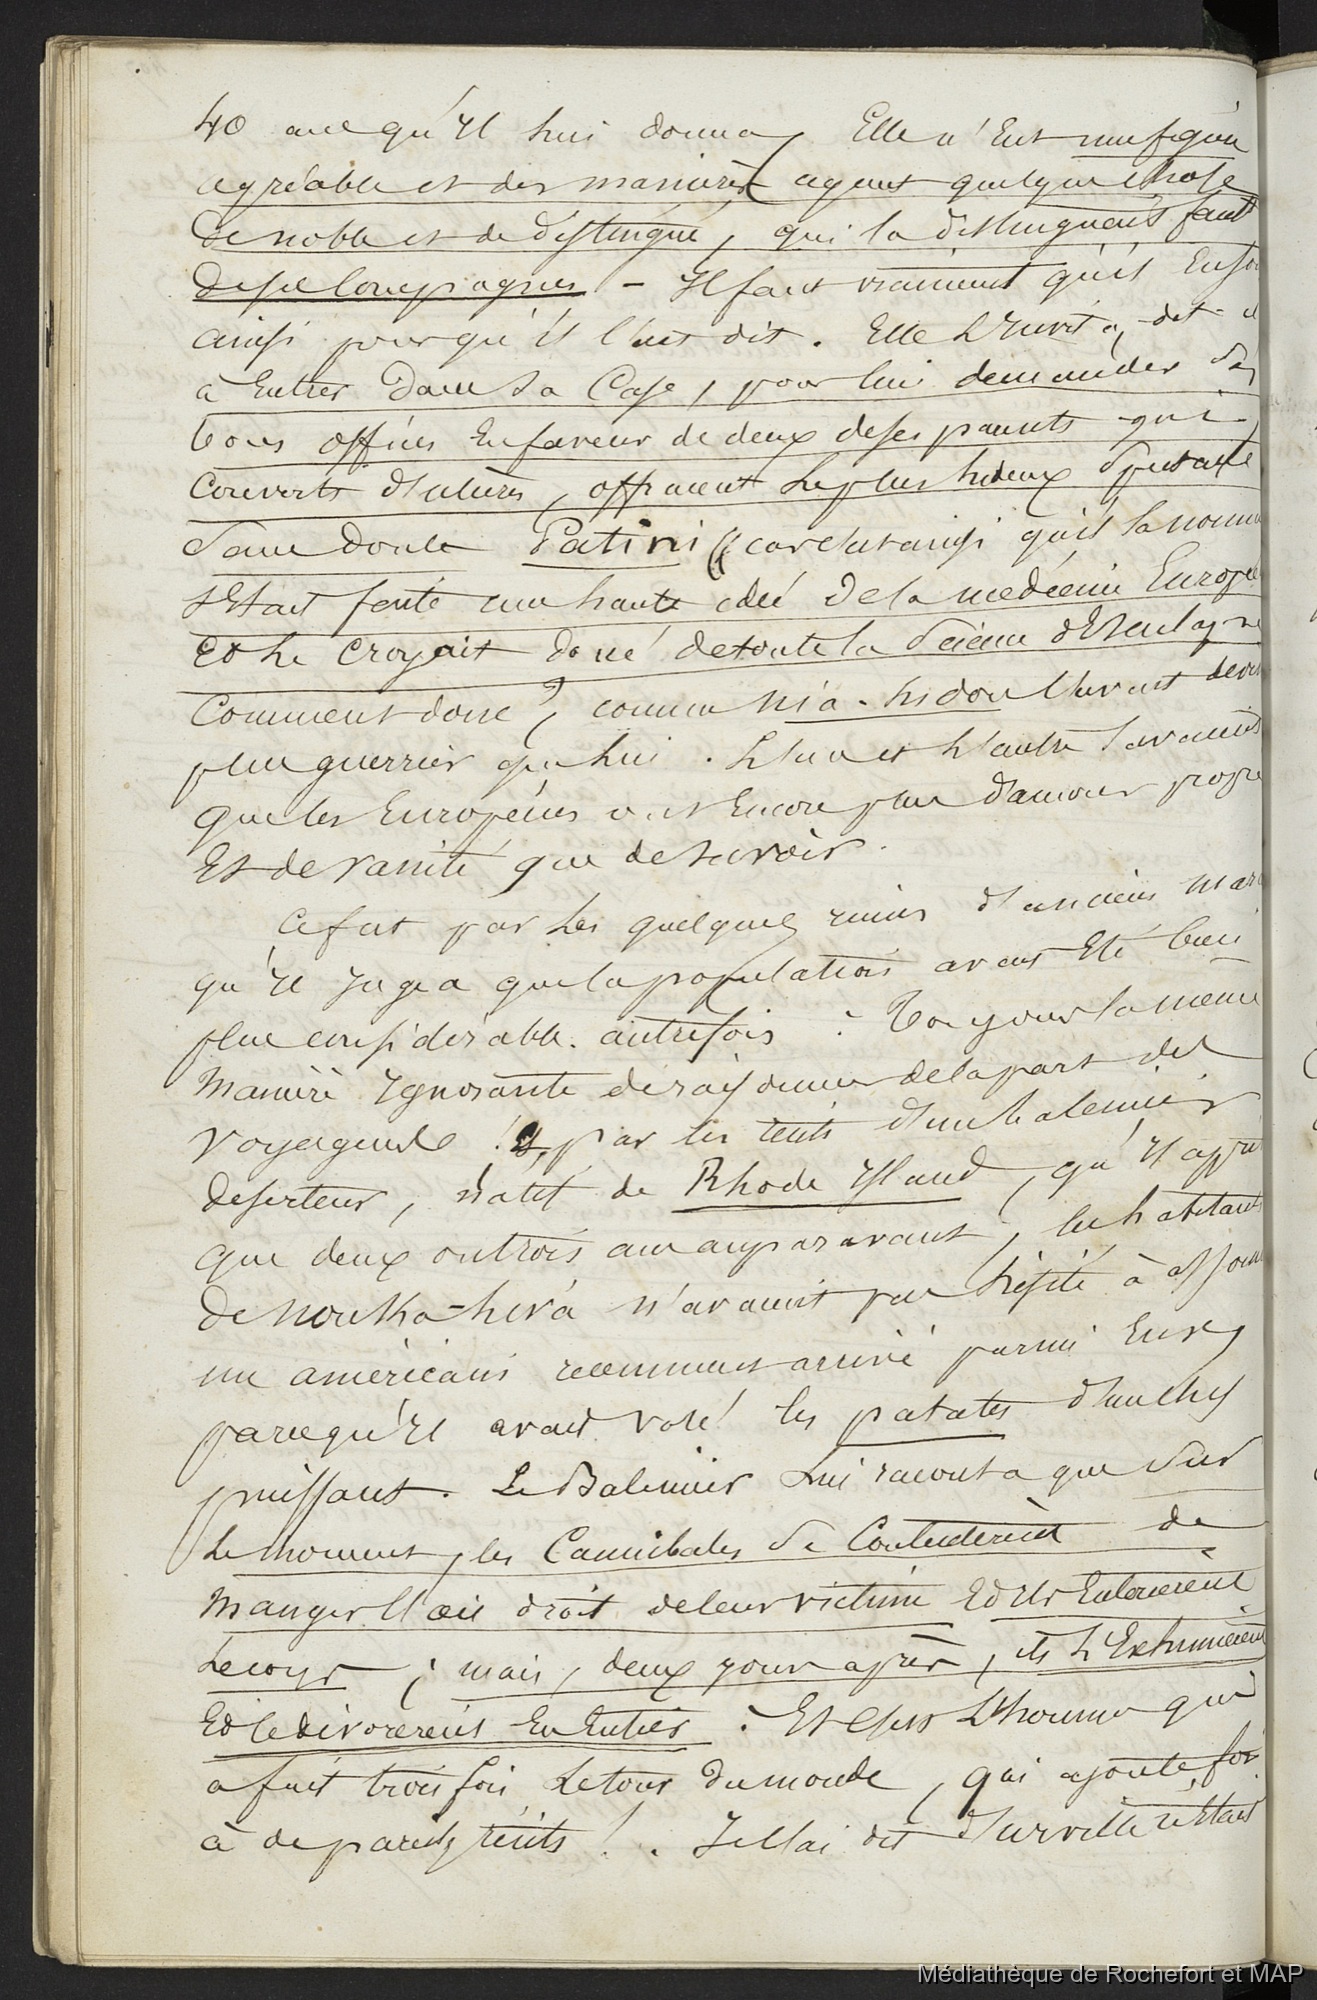 40 ans qu'Il lui donna, Elle n'Eut une figure
agréable et des manières ayant quelque chose
de noble et de distingué, qui la distinguait fault
de ses Compagnes - Il faut vraiment qu'il En soi
ainsi pour qu'Il l'aie dit. Elle L'Invita, dit-il
à Entrer Dans Sa Case, pour lui demander Ses
bons offices En faveur de deux de ses parents qui
Couverts d'ulcères, offraient Le plus hideux Spectacle
Sans Doute Patini (car c'est ainsi qu'il la nomme
s'Etait fait une haute idée De la médecine Europé
Et Le Croyait Doué de toute la Science d'Esculape
Comment donc ?, comme Nia-hidou l'avait devin
plus guerrier que lui. L'un et L'autre Savaient
que les Européens ont Encore plus d'amour propre
Et de vanité que de Savoir.
Ce fut par Les quelques ruines d'anciens Mar
qu'Il Jugea que la population avait Eté bien
plus considérable autrefois : Toujours la même
Manière Ignorante de raisonner de la part des
Voyageurs ! Et, par les récits d'un baleinier
deserteur, natif de Rhode Island, qu'Il apprit
que deux ou trois ans auparavant, les habitants
De Nouka-hiva n'avaient pas hésité à assom
un américain récemment arrivé parmi Eux,
parcequ'Il avait volé les patates d'un chef
puissant. Le Baleinier Lui raconta que Sur
Le moment, les Cannibales Se Contentèrent de
Manger l'œil droit de leur victime Et Ils Enterrèrent
Le corps ; mais, deux jours après, ils L'Exhumèrent
Et le dévorèrent En Entier : Et c'est L'homme qui
a fait trois fois Le tour Du monde, qui ajoute foi
à de pareils récits ! . Je l'ai dit d'urville n'Etait
Médiathèque de Rochefort et MAP